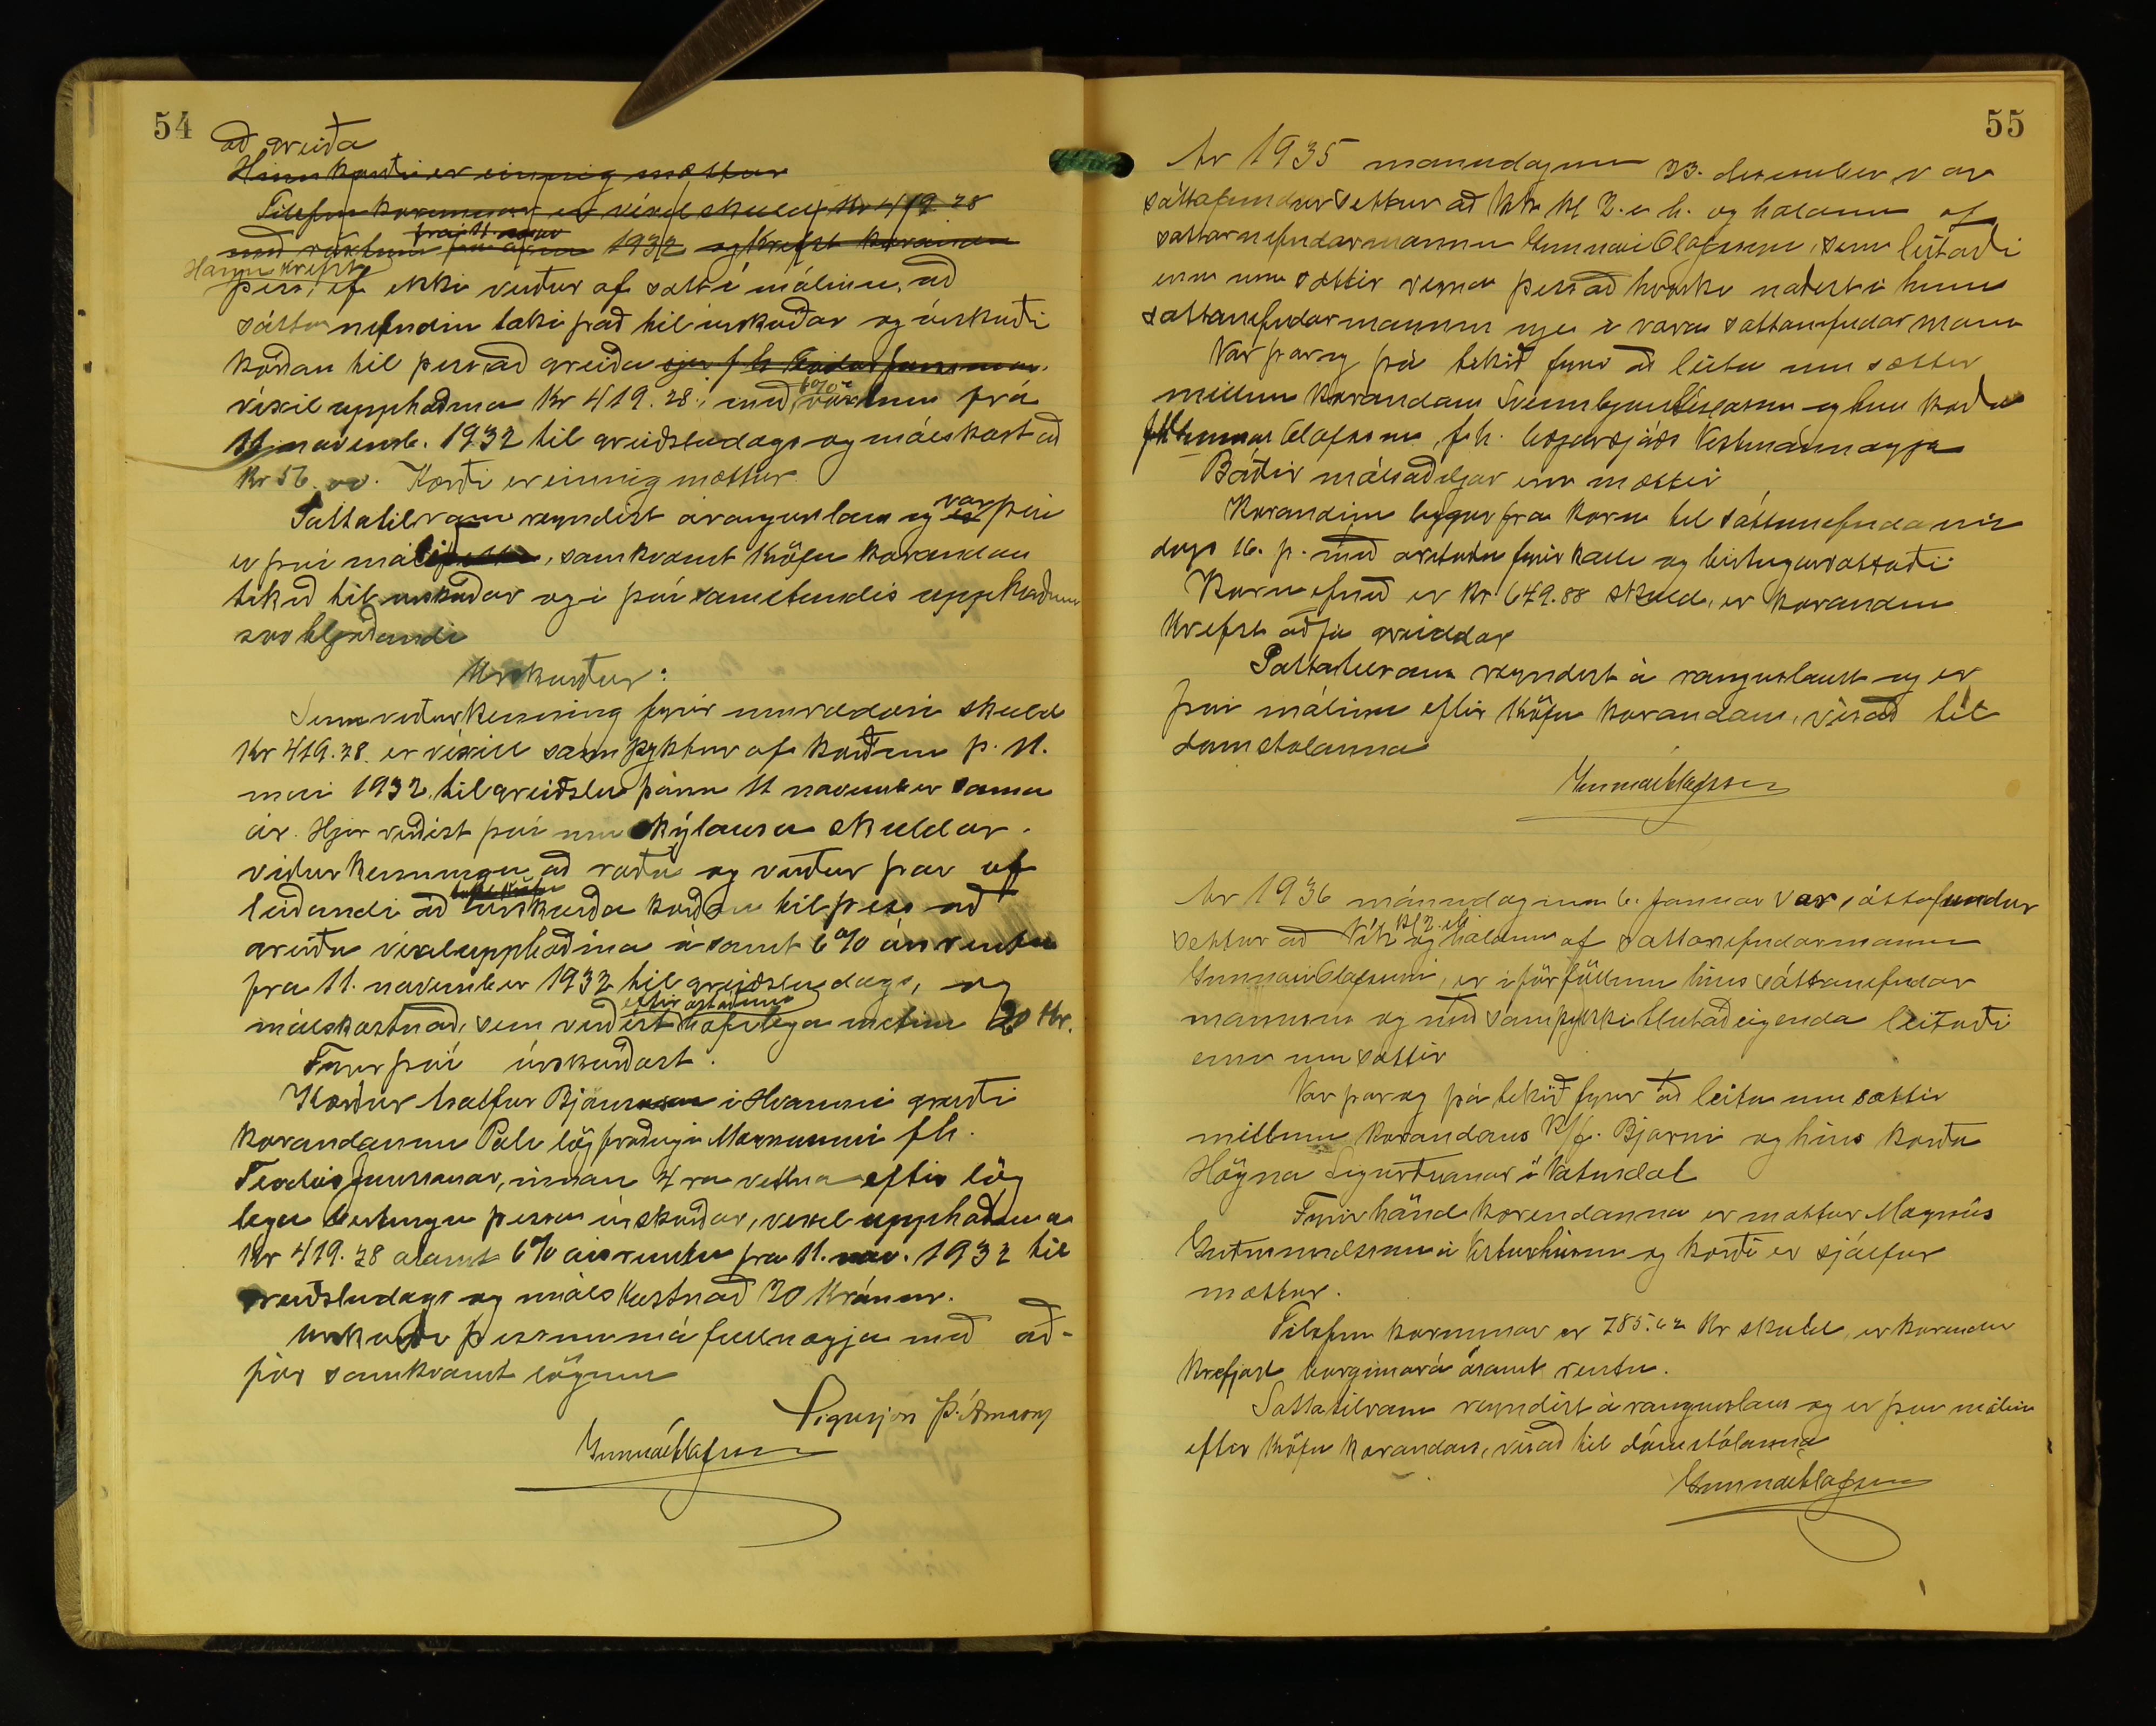 54
að greiða
Hinn kærði er einnig mættur
Tilefni kærunnar er víxilskuld, Kr 419.28
með vöxtum frá 11. nóv 1932 og krefst kærandi
Hann krefst
þess, ef ekki verður af sátt í málinu, að
sáttanefndin taki það til úrskurðar og úrskurði
kærðan til þess að greiða sjer f h
víxilupphæðina Kr 419.28, með 6% vöxtum frá
11 novemb. 1932 til greiðsludags og málskost að
Kr 56.00. Kærði er einnig mættur.
Sáttatilraun reyndist árangurslaus og var þessi
er því málið, samkvæmt kröfu kærandans
tekið til úrskurðar og í því sameturdis uppkveðinn
svo hljóðandi
Úrskurður:
Sem viðurkenning fyrir umræddri skuld
Kr 419.28. er víxill samþyktur af kærðum þ. 11.
mai 1932, til greiðslu þann 11 november sama
ár. Hjer virðist því um skýlausa skuldar-
viðurkenningu að ræða og verður þar af
leiðandi að úrskurða kærðan til þess að
greiða víxilupphæðina ásamt 6% ársrentu
fra 11. november 1932 til greiðsludags, og
málskostnað, sem virðist eftir ástæðum hæfilega metinn 20 Kr.
Fyrir því úrskurðast:
Kærður Hálfur Björnsson í Hvammi greiði
kærandanum Páli lögfræðingi Magnússyni fh.
Feodórs Jónssonar, innan 4ra vikna eftir lög
lega birtingu þessa úrskurðar, vexelupphæðina
Kr 419.28 ásamt 6% ársrentu fra 11. nov. 1932 til
greiðsludags og málskostnað 20 Krónur.
Úrskurði þessum má fullnægja með að-
för samkvæmt lögum
Sigurjón Þ. Árnason
Gunnar Ólafsson
55
Ár 1935 manudaginn 23. desember var
sáttafundur settur að Vík kl 2. e h. og haldinn af
sattarnefndarmanni Gunnari Olafssyni, sem leitaði
einn um sættir vegna þess að hvorki naðist í hinn
sattanefndarmanninn nje í vara sattanefndar mann
Var þar og þá tekið fyrir að leita um sættir
millum kærandans Sveinbjörns Gíslasonar og hins kærða
Gunnars Olafssonar, f.h. bæjarsjóðs Vestmannaeyja
Báðir málsaðiljar eru mættir
Kærandinn leggur fra kæru til sáttanefndarinnar
dags 16. þ. með áritaðri fyrirkall og birtingarvottorði
Kæruefnið er Kr 649.88 skuld, er kærandinn
krefst að fá greiddar
Sattatilraun reyndist á rangurslaus og er
því málinu eftir kröfu kærandans, vísað til
dómstolanna
Gunnar Ólafsson
Ár 1936 mánudaginn 6. januar var sáttafundur
settur að Vík kl 2. eh og haldinn af sattanefndarmanni
Gunnari Olafssyni, er í forföllum hins sáttanefndar
mannsins og með samþykki hlutaðeigenda leitaði
einn um sættir
Var þar og þá tekið fyrir að leita um sættir
millum kærandans K/f. Bjarmi og hins kærða
Högna Sigurðssonar í Vatnsdal
Fyrir hönd kærendanna er mættur Magnús
Guðmundsson á Vesturhúsum og kærði er sjálfur
mættur.
Tilefni kærunnar er 785.62 Kr skuld, er kærendur
krefjast borgunar á ásamt rentu.
Sattatilraun reyndist á rangurslaus og er því málinu
eftir kröfu kærandans, vísað til dómstólanna
Gunnar Ólafsson